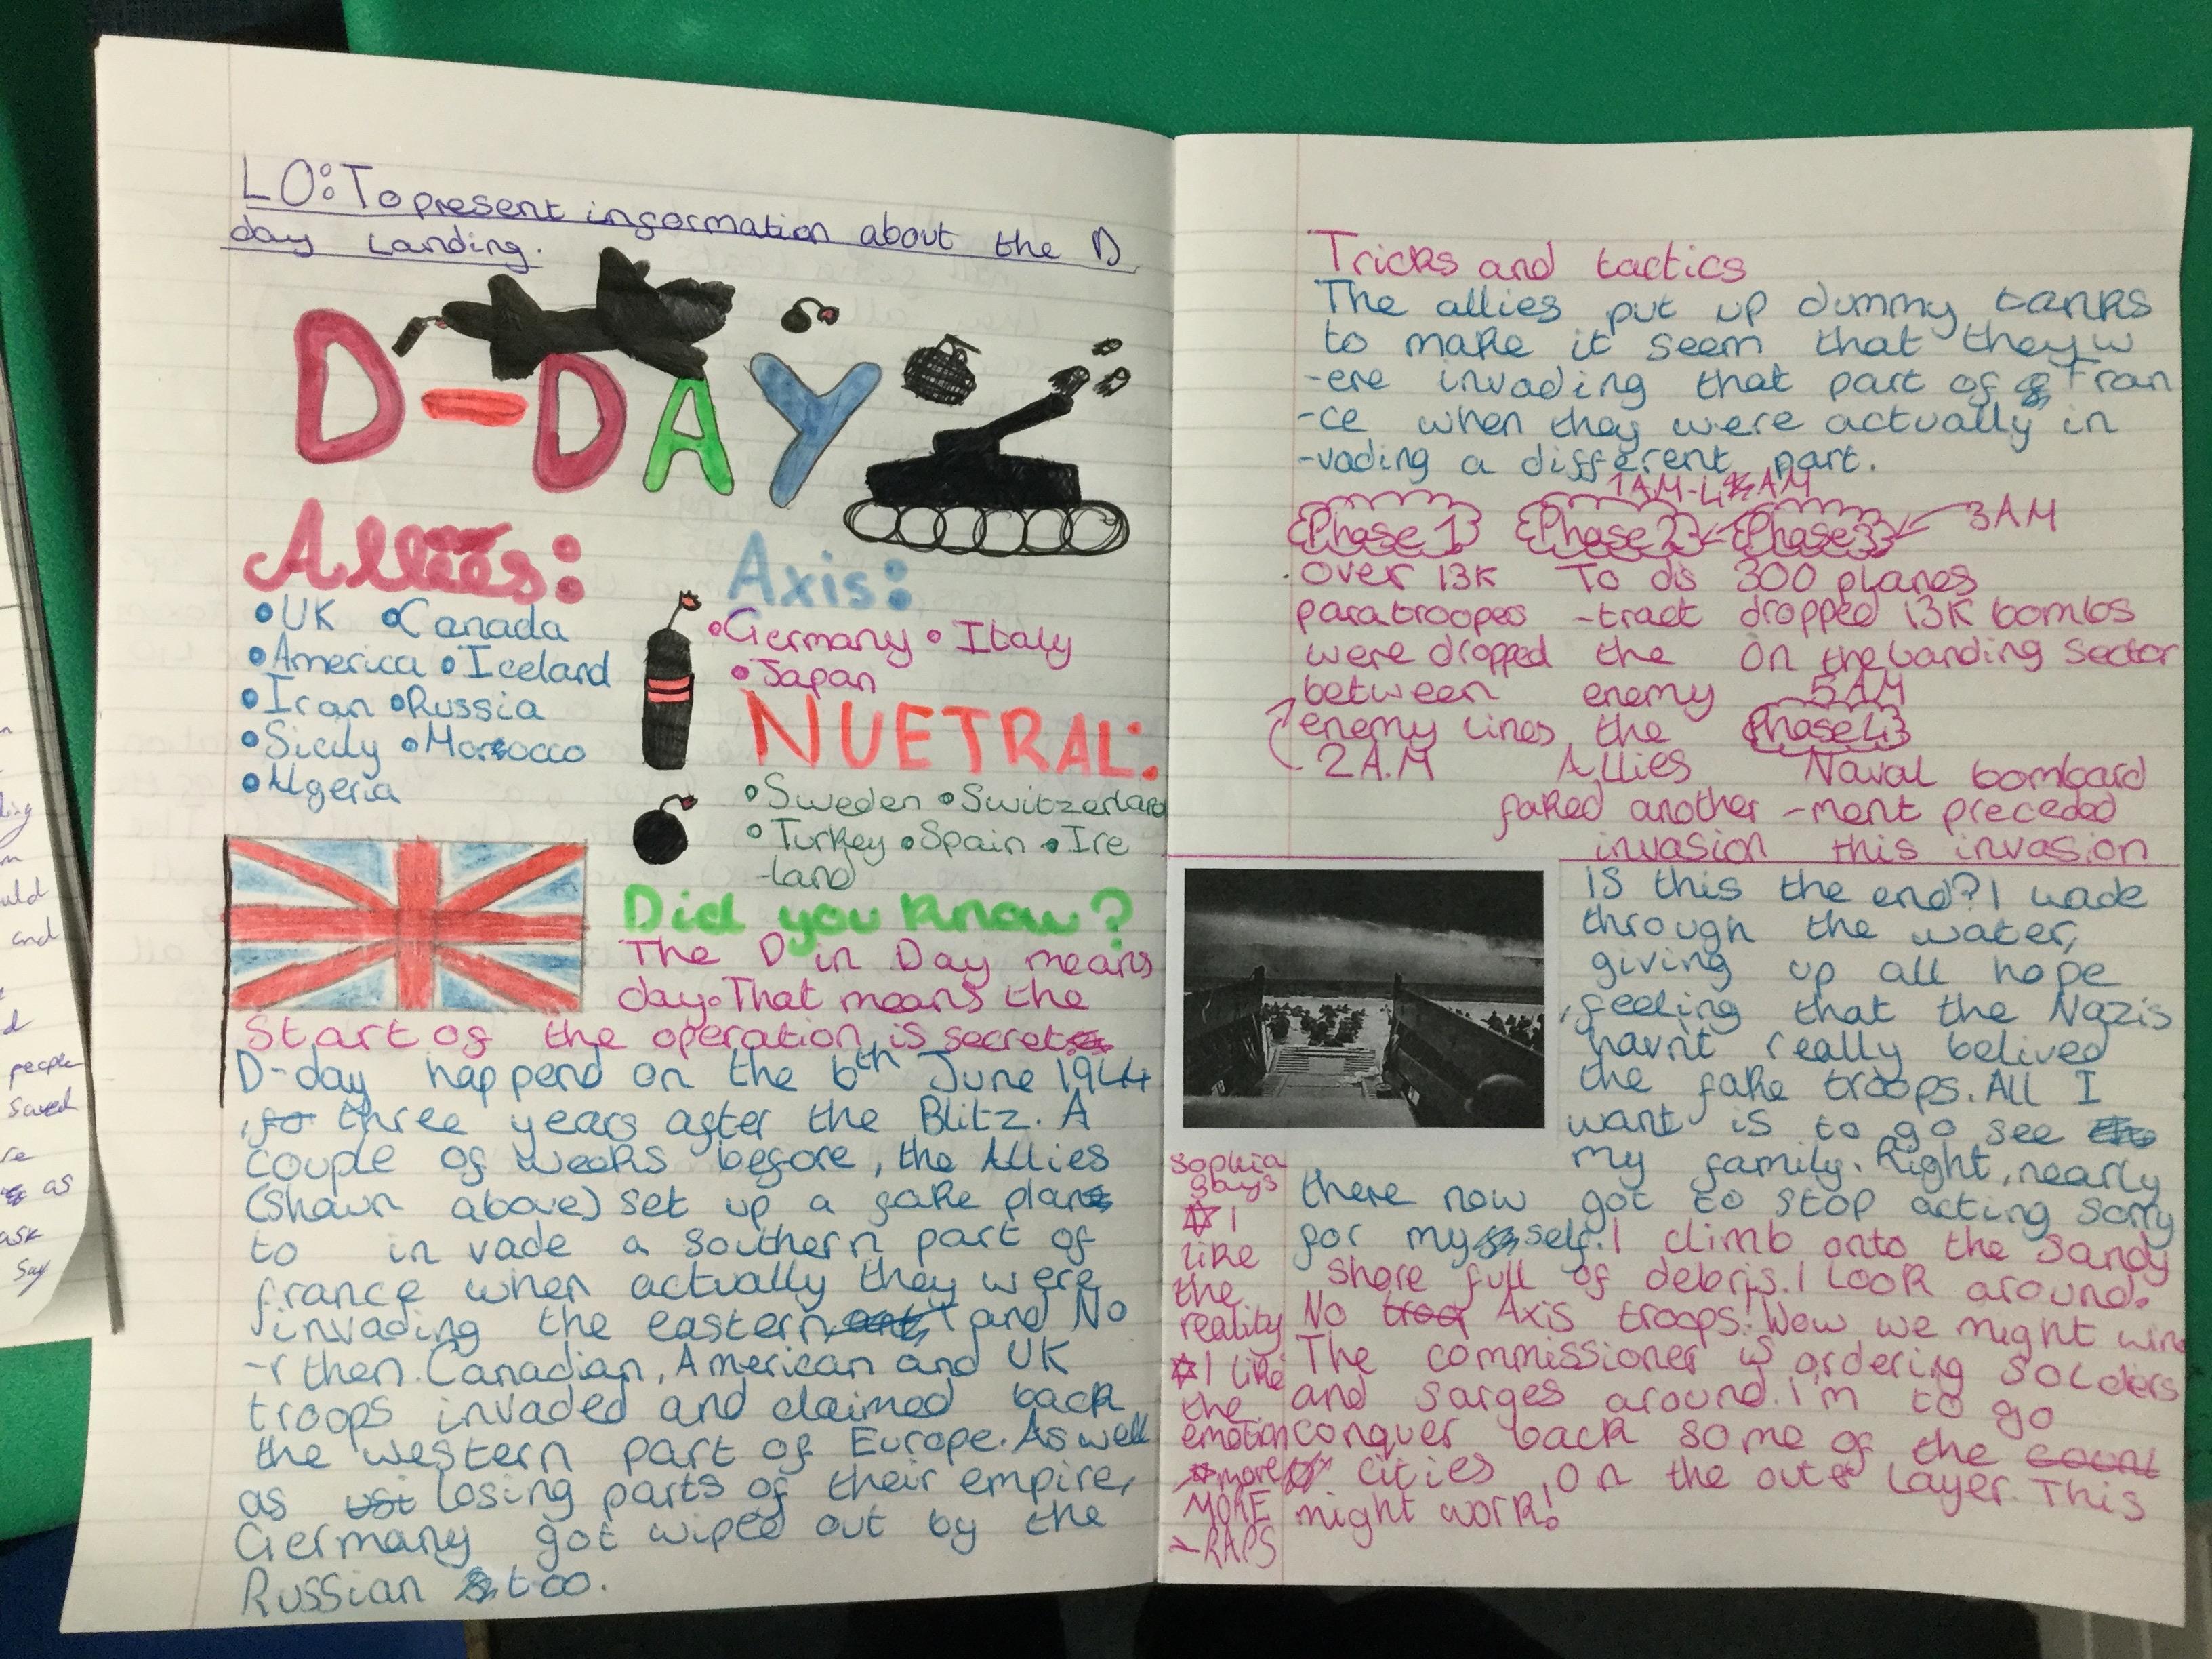 LO: To present information about the D
day Landing.
D-DAY
Allies:
•UK •Canada
•America •Iceland
•Iran •Russia
•Sicily •Morocco
•Algeria
Axis:
•Germany •Italy
•Japan
NUETRAL:
•Sweden •Switzerland
•Turkey •Spain •Ire
-land
Did you know?
The D in Day means
day. That means the
start of the operation is secret
D-day happend on the 6th June 1944
, three years after the Blitz. A
couple of weeks before, the Allies
(shown above) set up a fake plan
to in vade a southern part of
france when actually they were
invading the eastern and No
-rthen. Canadian, American and UK
troops invaded and claimed back
the western part of Europe. As well
as losing parts of their empire,
Germany got wiped out by the
Russian too.
Tricks and tactics
The allies put up dummy tanks
to make it seem that they w
-ere invading that part of Fran
-ce when they were actually in
-vading a different part.
Phase 1
over 13K
paratroopes
were dropped
between
enemy lines
2A.M
1AM-4AM
Phase 2
To dis
-tract
the
enemy
the
Allies
faked another
invasion
Phase 3
3AM
300 planes
dropped 13K bombs
on the landing sector
5AM
Phase 4
Naval bombard
-ment preceded
this invasion
Is this the end? I wade
through the water,
giving up all hope
, feeling that the Nazis
havn't really belived
the fake troops. All I
want is to go see
my family. Right, nearly
there now got to stop acting sorry
for my self. I climb onto the sandy
shore full of debris. I look around.
No Axis troops! Wow we might win
The commissioner is ordering soldiers
and sarges around. I'm to go
conquer back some of the
cities on the oute layer. This
might work!
Sophia
says
I
like
the
reality
I like
the
emotion
more
MORE
-RAPS
people
saved
as
ask
say
and